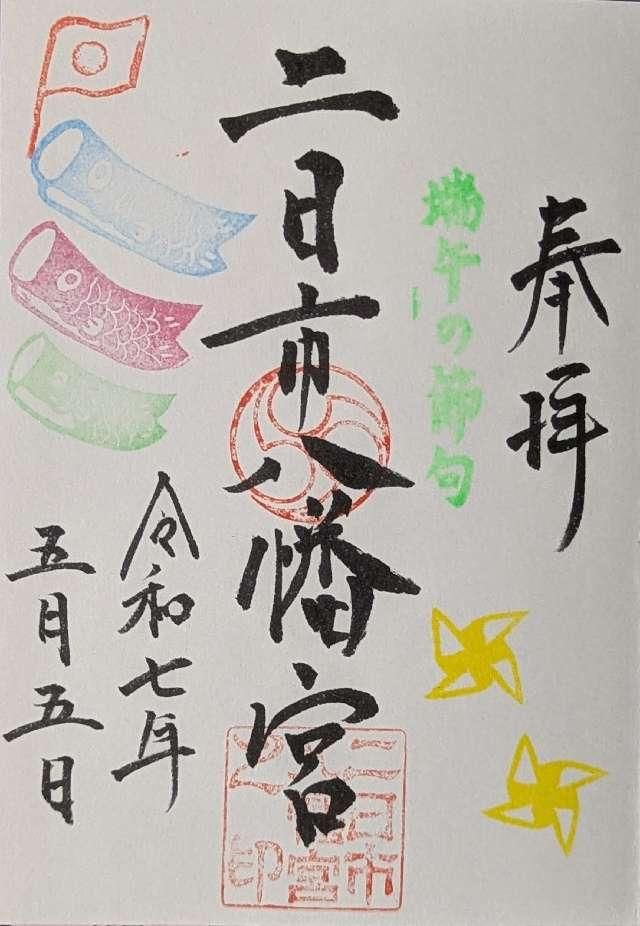 奉拝
端午の節句
二日市八幡宮
二日市
八幡宮
之印
令和七年
五月五日